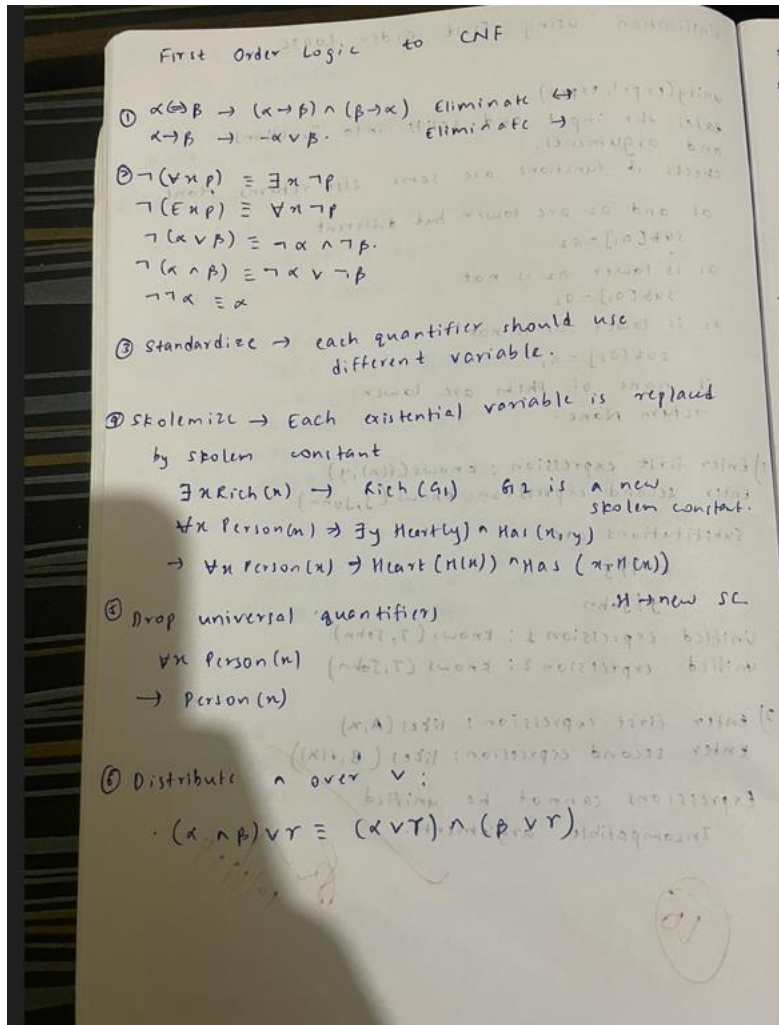 First Order Logic to CNF
① α⇔β → (α→β) ∧ (β→α) Eliminate ↔
α→β → ¬α∨β. Eliminate →
② ¬(∀x p) ≡ ∃x ¬p
¬(Exp) ≡ ∀x ¬p
¬(α∨β) ≡ ¬α ∧ ¬β.
¬(α∧β) ≡ ¬α ∨ ¬β
¬¬α ≡ α
③ Standardize → each quantifier should use
different variable.
④ Skolemize → Each existential variable is replaced
by skolem constant
∃x Rich(x) → Rich(G1) G1 is a new
skolem constant.
∀x Person(x) ⇒ ∃y Heart(y) ∧ Has(x,y)
→ ∀x Person(x) ⇒ Heart(H(x)) ∧ Has(x,H(x))
H→new SC
⑤ Drop universal quantifiers
∀x Person(x)
→ Person(x)
⑥ Distribute ∧ over ∨ :
(α∧β)∨γ ≡ (α∨γ)∧(β∨γ)